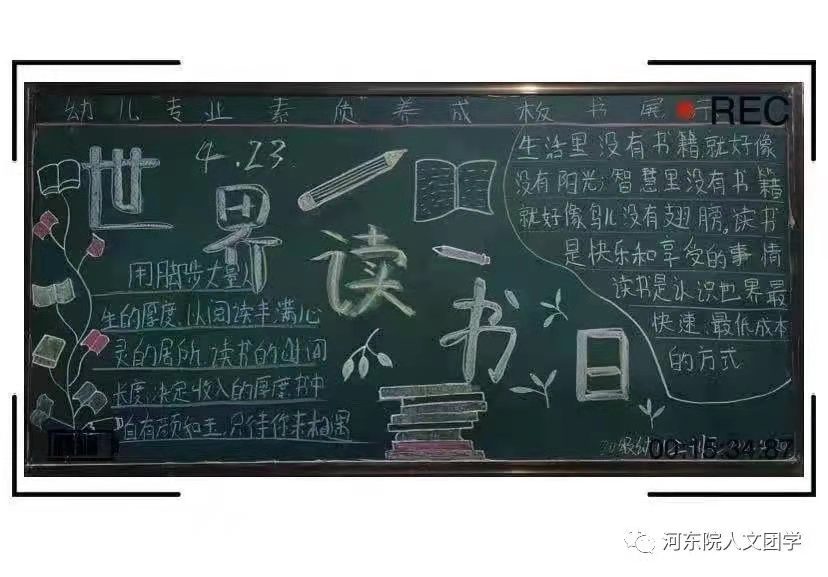 幼儿专业素质养成板书展示
REC
4.23
世界读书日
用脚步丈量人
生的厚度,以阅读丰满心
灵的居所,读书的时间
长度,决定收入的厚度书中
自有颜如玉,只待你来相遇
生活里没有书籍就好像
没有阳光;智慧里没有书籍
就好像鸟儿没有翅膀。读书
是快乐和享受的事情
读书是认识世界最
快速、最低成本
的方式
20级幼
00:15:34:87
河东院人文团学